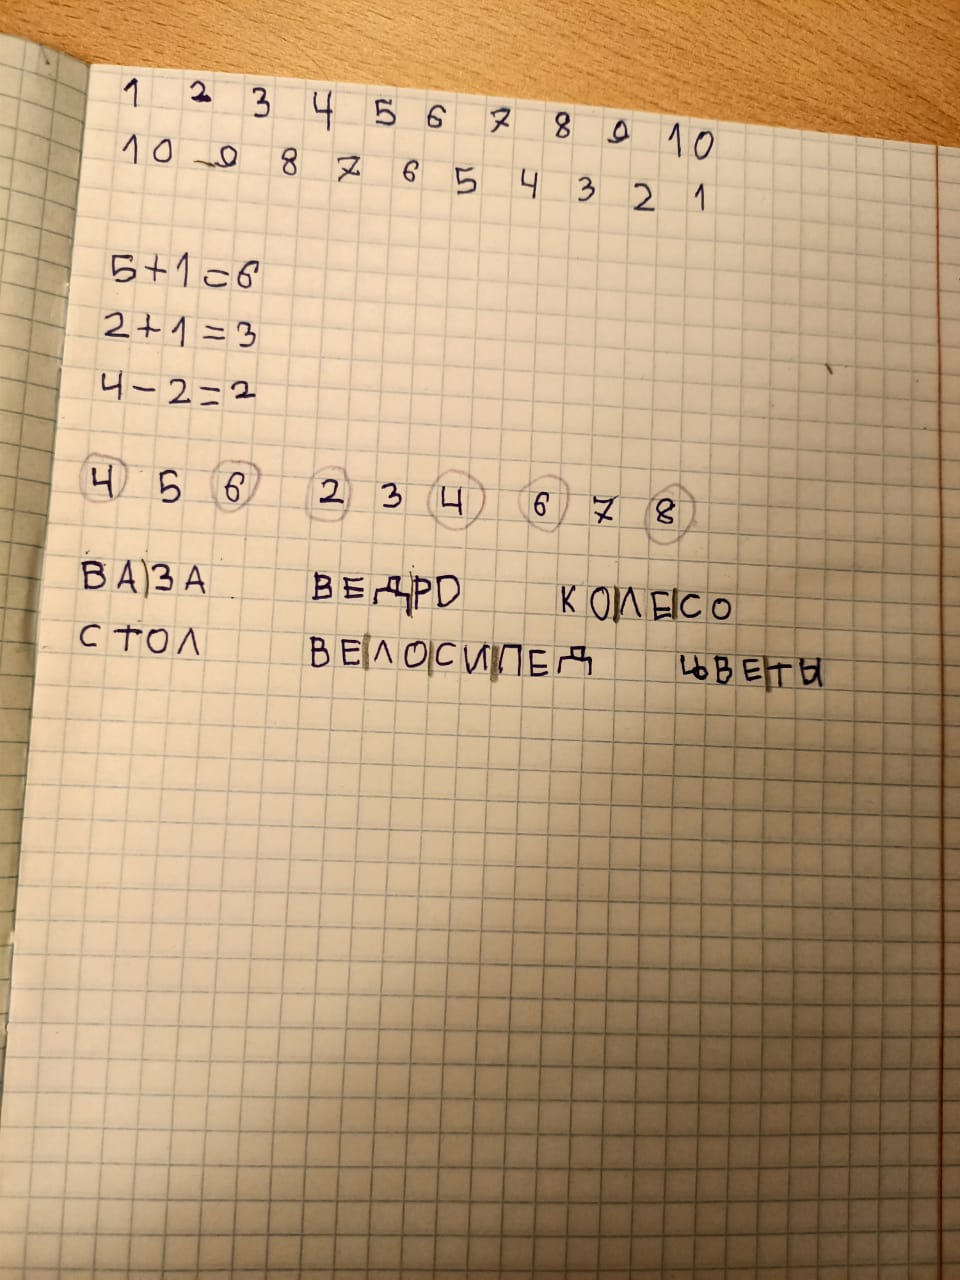 1 2 3 4 5 6 7 8 9 10
10 9 8 7 6 5 4 3 2 1
5+1=6
2+1=3
4-2=2
4 5 6 2 3 4 6 7 8
ВА|ЗА ВЕД|РО КО|ЛЕ|СО
СТОЛ ВЕ|ЛО|СИ|ПЕД ЦВЕ|ТЫ